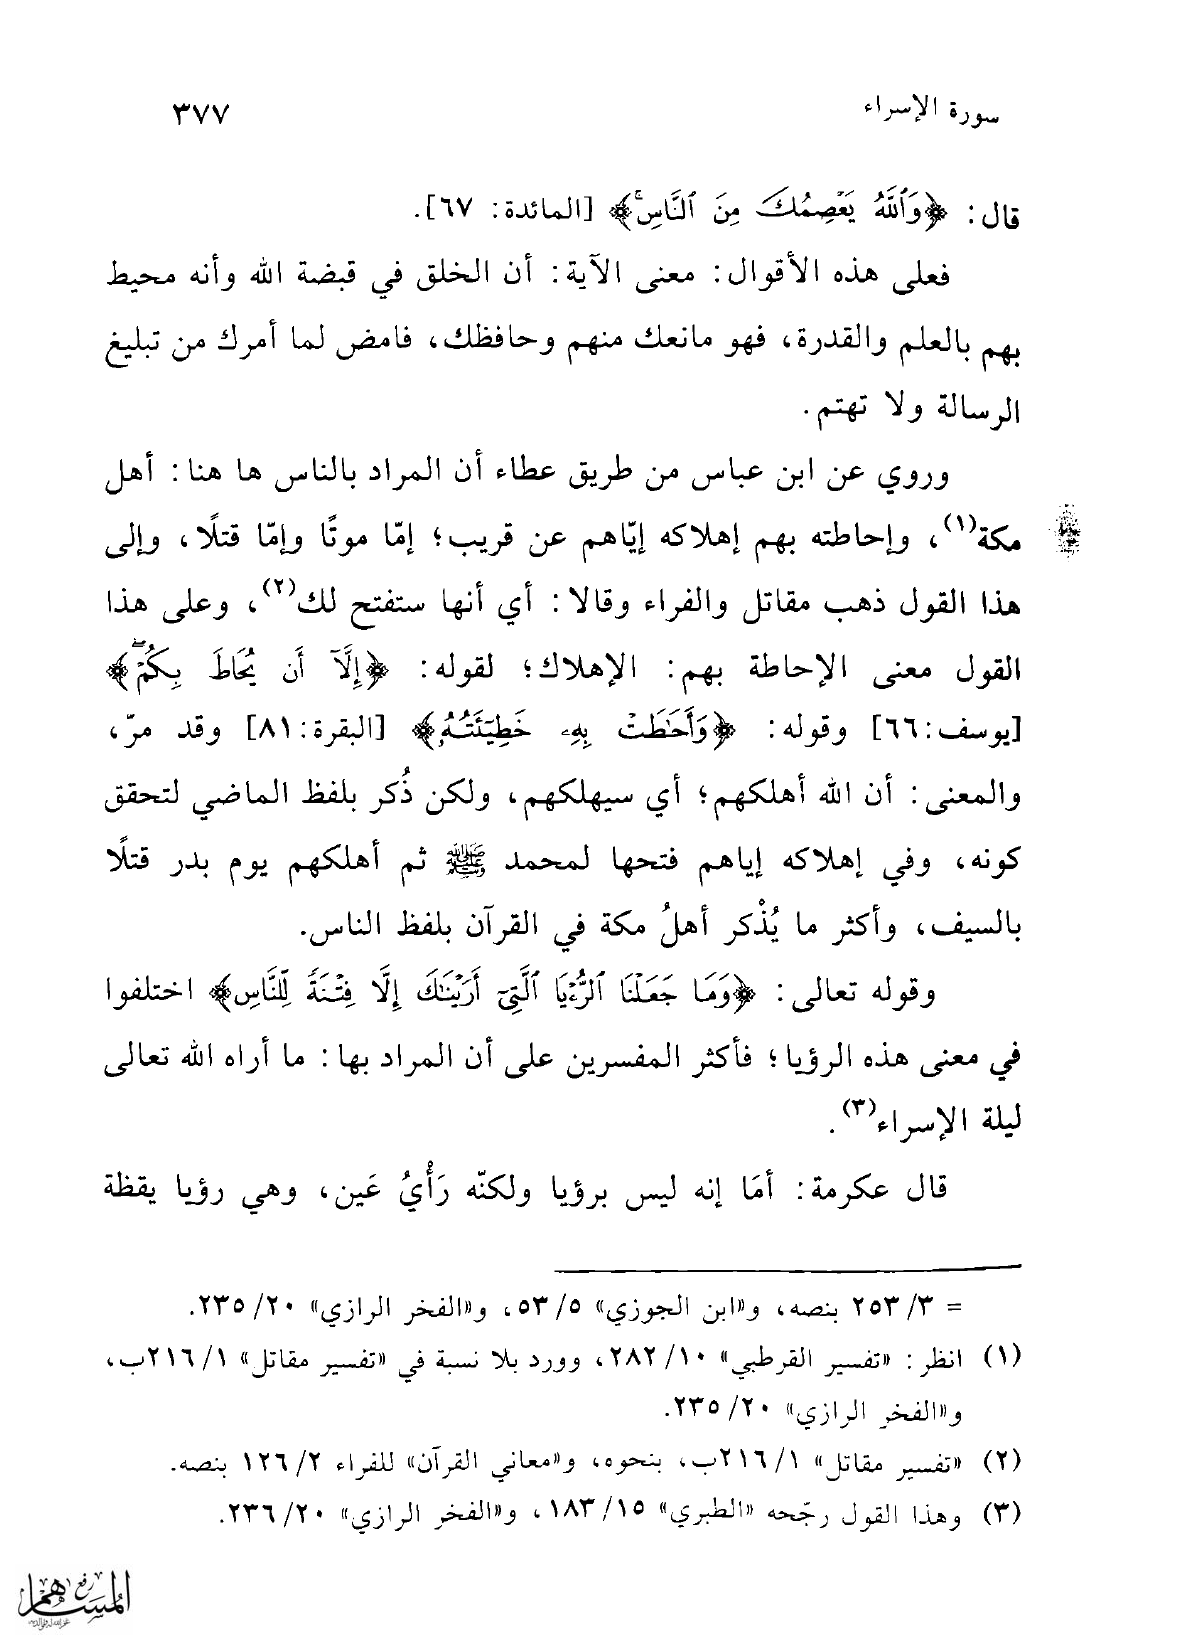 سورة الإسراء ٣٧٧
قال: ﴿وَٱللَّهُ يَعۡصِمُكَ مِنَ ٱلنَّاسِۗ﴾ [المائدة: ٦٧].
فعلى هذه الأقوال: معنى الآية: أن الخلق في قبضة الله وأنه محيط
بهم بالعلم والقدرة، فهو مانعك منهم وحافظك، فامض لما أمرك من تبليغ
الرسالة ولا تهتم.
وروي عن ابن عباس من طريق عطاء أن المراد بالناس ها هنا: أهل
مكة(١)، وإحاطته بهم إهلاكه إيّاهم عن قريب؛ إمّا موتًا وإمّا قتلًا، وإلى
هذا القول ذهب مقاتل والفراء وقالا: أي أنها ستفتح لك(٢)، وعلى هذا
القول معنى الإحاطة بهم: الإهلاك؛ لقوله: ﴿إِلَّآ أَن يُحَاطَ بِكُمۡۖ﴾
[يوسف:٦٦] وقوله: ﴿وَأَحَٰطَتۡ بِهِۦ خَطِيٓـَٔتُهُۥ﴾ [البقرة:٨١] وقد مرّ،
والمعنى: أن الله أهلكهم؛ أي سيهلكهم، ولكن ذُكر بلفظ الماضي لتحقق
كونه، وفي إهلاكه إياهم فتحها لمحمد ﷺ ثم أهلكهم يوم بدر قتلًا
بالسيف، وأكثر ما يُذْكر أهلُ مكة في القرآن بلفظ الناس.
وقوله تعالى: ﴿وَمَا جَعَلۡنَا ٱلرُّءۡيَا ٱلَّتِيٓ أَرَيۡنَٰكَ إِلَّا فِتۡنَةٗ لِّلنَّاسِ﴾ اختلفوا
في معنى هذه الرؤيا؛ فأكثر المفسرين على أن المراد بها: ما أراه الله تعالى
ليلة الإسراء(٣).
قال عكرمة: أمَا إنه ليس برؤيا ولكنّه رَأْيُ عَين، وهي رؤيا يقظة
= ٣/ ٢٥٣ بنصه، و«ابن الجوزي» ٥/ ٥٣، و«الفخر الرازي» ٢٠/ ٢٣٥.
(١) انظر: «تفسير القرطبي» ١٠/ ٢٨٢، وورد بلا نسبة في «تفسير مقاتل» ١/ ٢١٦ب،
و«الفخر الرازي» ٢٠/ ٢٣٥.
(٢) «تفسير مقاتل» ١/ ٢١٦ب، بنحوه، و«معاني القرآن» للفراء ٢/ ١٢٦ بنصه.
(٣) وهذا القول رجّحه «الطبري» ١٥/ ١٨٣، و«الفخر الرازي» ٢٠/ ٢٣٦.
رفع
المساهم